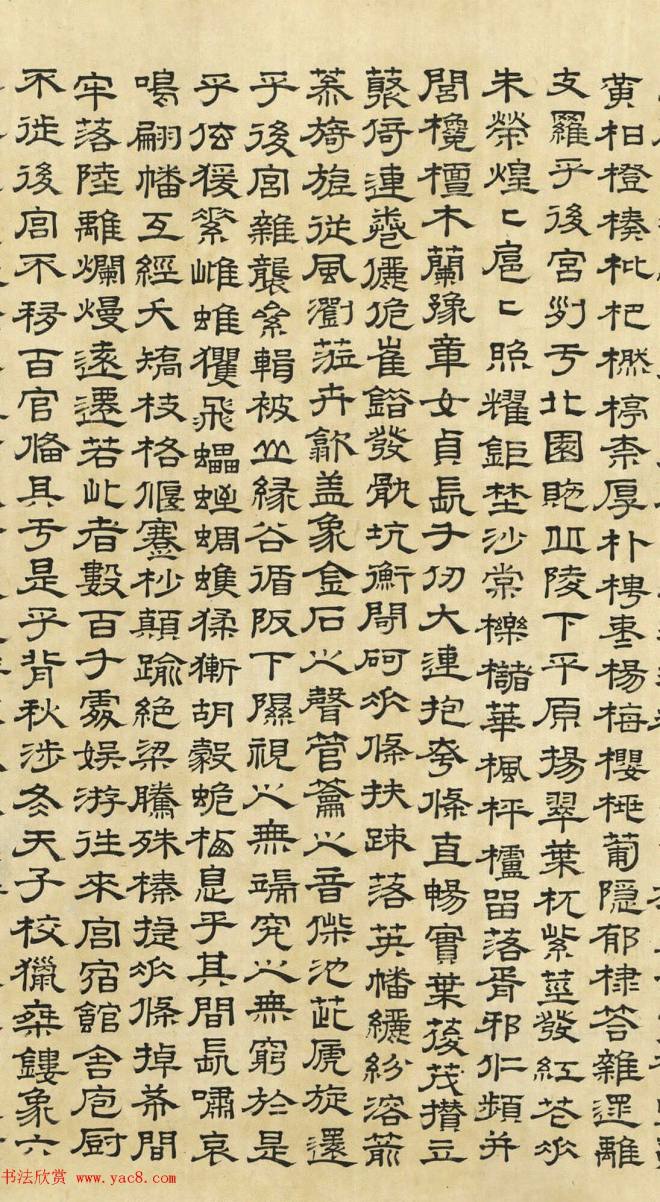 黃柑橙楱枇杷橪楟柰厚朴梬棗楊梅櫻桃葡隱郁棣荅雜遝離
支羅乎後宮列于北園貤丘陵下平原揚翠葉杌紫莖發紅花垂
朱榮煌〻扈〻照耀鉅埜沙棠櫟櫧華楓枰櫨留落胥邪仁頻并
閭欃檀木蘭豫章女貞長千仞大連抱夸條直暢實葉葰茂攢立
叢倚連卷儷佹崔錯發骫坑衡閜砢垂條扶疎落英幡纚紛溶萷
旖旎從風瀏蒞卉歙盖象金石之聲管籥之音柴池茈虒旋還
乎後宮雜襲絫輯被山緣谷循阪下隰視之無端究之無窮於是
乎玄猨素雌蜼玃飛蠝蛭蜩蠼猱獑胡豰蛫栖息乎其間長嘯哀
鳴翩幡互經夭矯枝格偃蹇杪顛踰絕梁騰殊榛捷垂條掉希間
牢落陸離爛熳遠遷若此者數百千處娛游往來宮宿館舍庖厨
不徙後宮不移百官備具于是乎背秋涉冬天子校獵乘鏤象六
书法欣赏 www.yac8.com